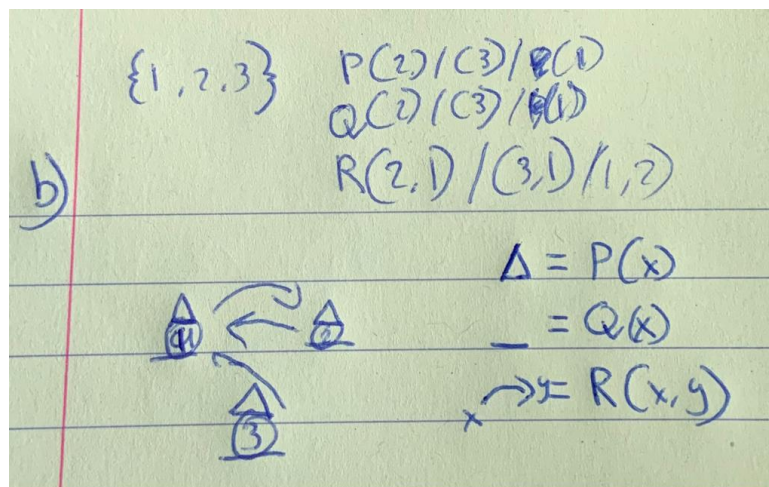 {1,2,3} P(2)/(3)/(1)
Q(2)/(3)/(1)
R(2,1)/(3,1)/1,2)
b)
Δ = P(x)
_ = Q(x)
x → y = R(x,y)
Δ 1 Δ 2
Δ 3